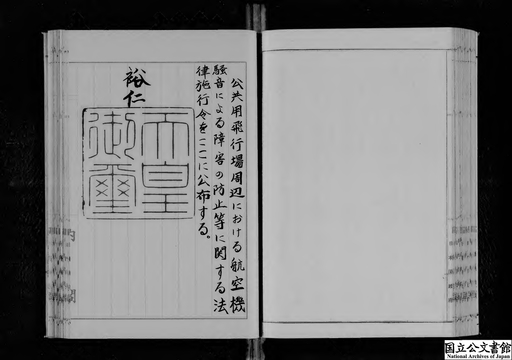 公共用飛行場周辺における航空機
騒音による障害の防止等に関する法
律施行令をここに公布する。
裕仁
天皇
御璽
国立公文書館
National Archives of Japan